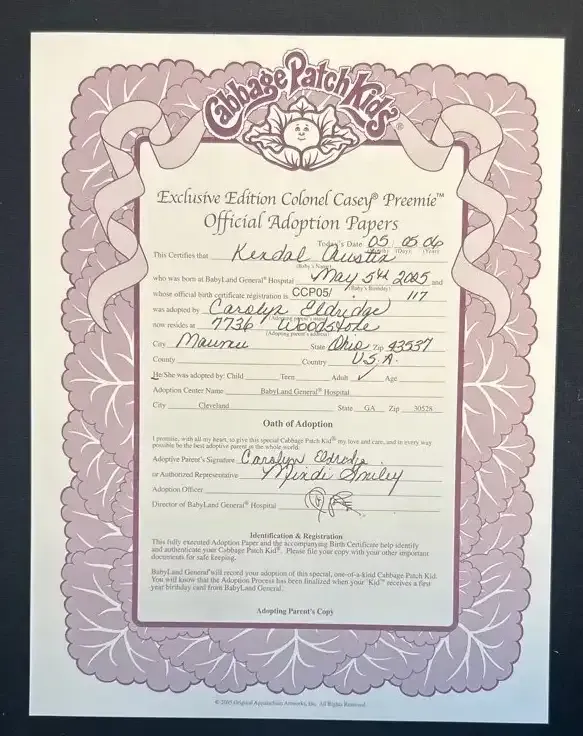 Cabbage Patch Kids®
Exclusive Edition Colonel Casey® Preemie™
Official Adoption Papers
Today's Date 05 / 05 06
(Month) (Day) (Year)
This Certifies that Kendal Austin
(Baby's Name)
who was born at BabyLand General® Hospital May 5th 2005, and
(Baby's Birthday)
whose official birth certificate registration is CCP05/ 117
was adopted by Carolyn Eldridge
(Adopting parent's name)
now resides at 7736 Woodstone
(Adopting parent's address)
City Maumee State Ohio Zip 43537
County Country U.S.A.
He/She was adopted by: Child Teen Adult ✓ Age
Adoption Center Name BabyLand General® Hospital
City Cleveland State GA Zip 30528
Oath of Adoption
I promise, with all my heart, so give this special Cabbage Patch Kid® my love and care, and in every way
possible be the best adoptive parent in the whole world.
Adoptive Parent's Signature Carolyn Eldridge
or Authorized Representative Mindi Smiley
Adoption Officer
Director of BabyLand General® Hospital
Identification & Registration
This fully executed Adoption Paper and the accompanying Birth Certificate help identify
and authenticate your Cabbage Patch Kid®. Please file your copy with your other important
documents for safe keeping.
BabyLand General® will record your adoption of this special, one-of-a-kind Cabbage Patch Kid.
You will know that the Adoption Process has been finalized when your 'Kid'™ receives a first
year birthday card from BabyLand General.
Adopting Parent's Copy
© 2005 Original Appalachian Artworks, Inc. All Rights Reserved.